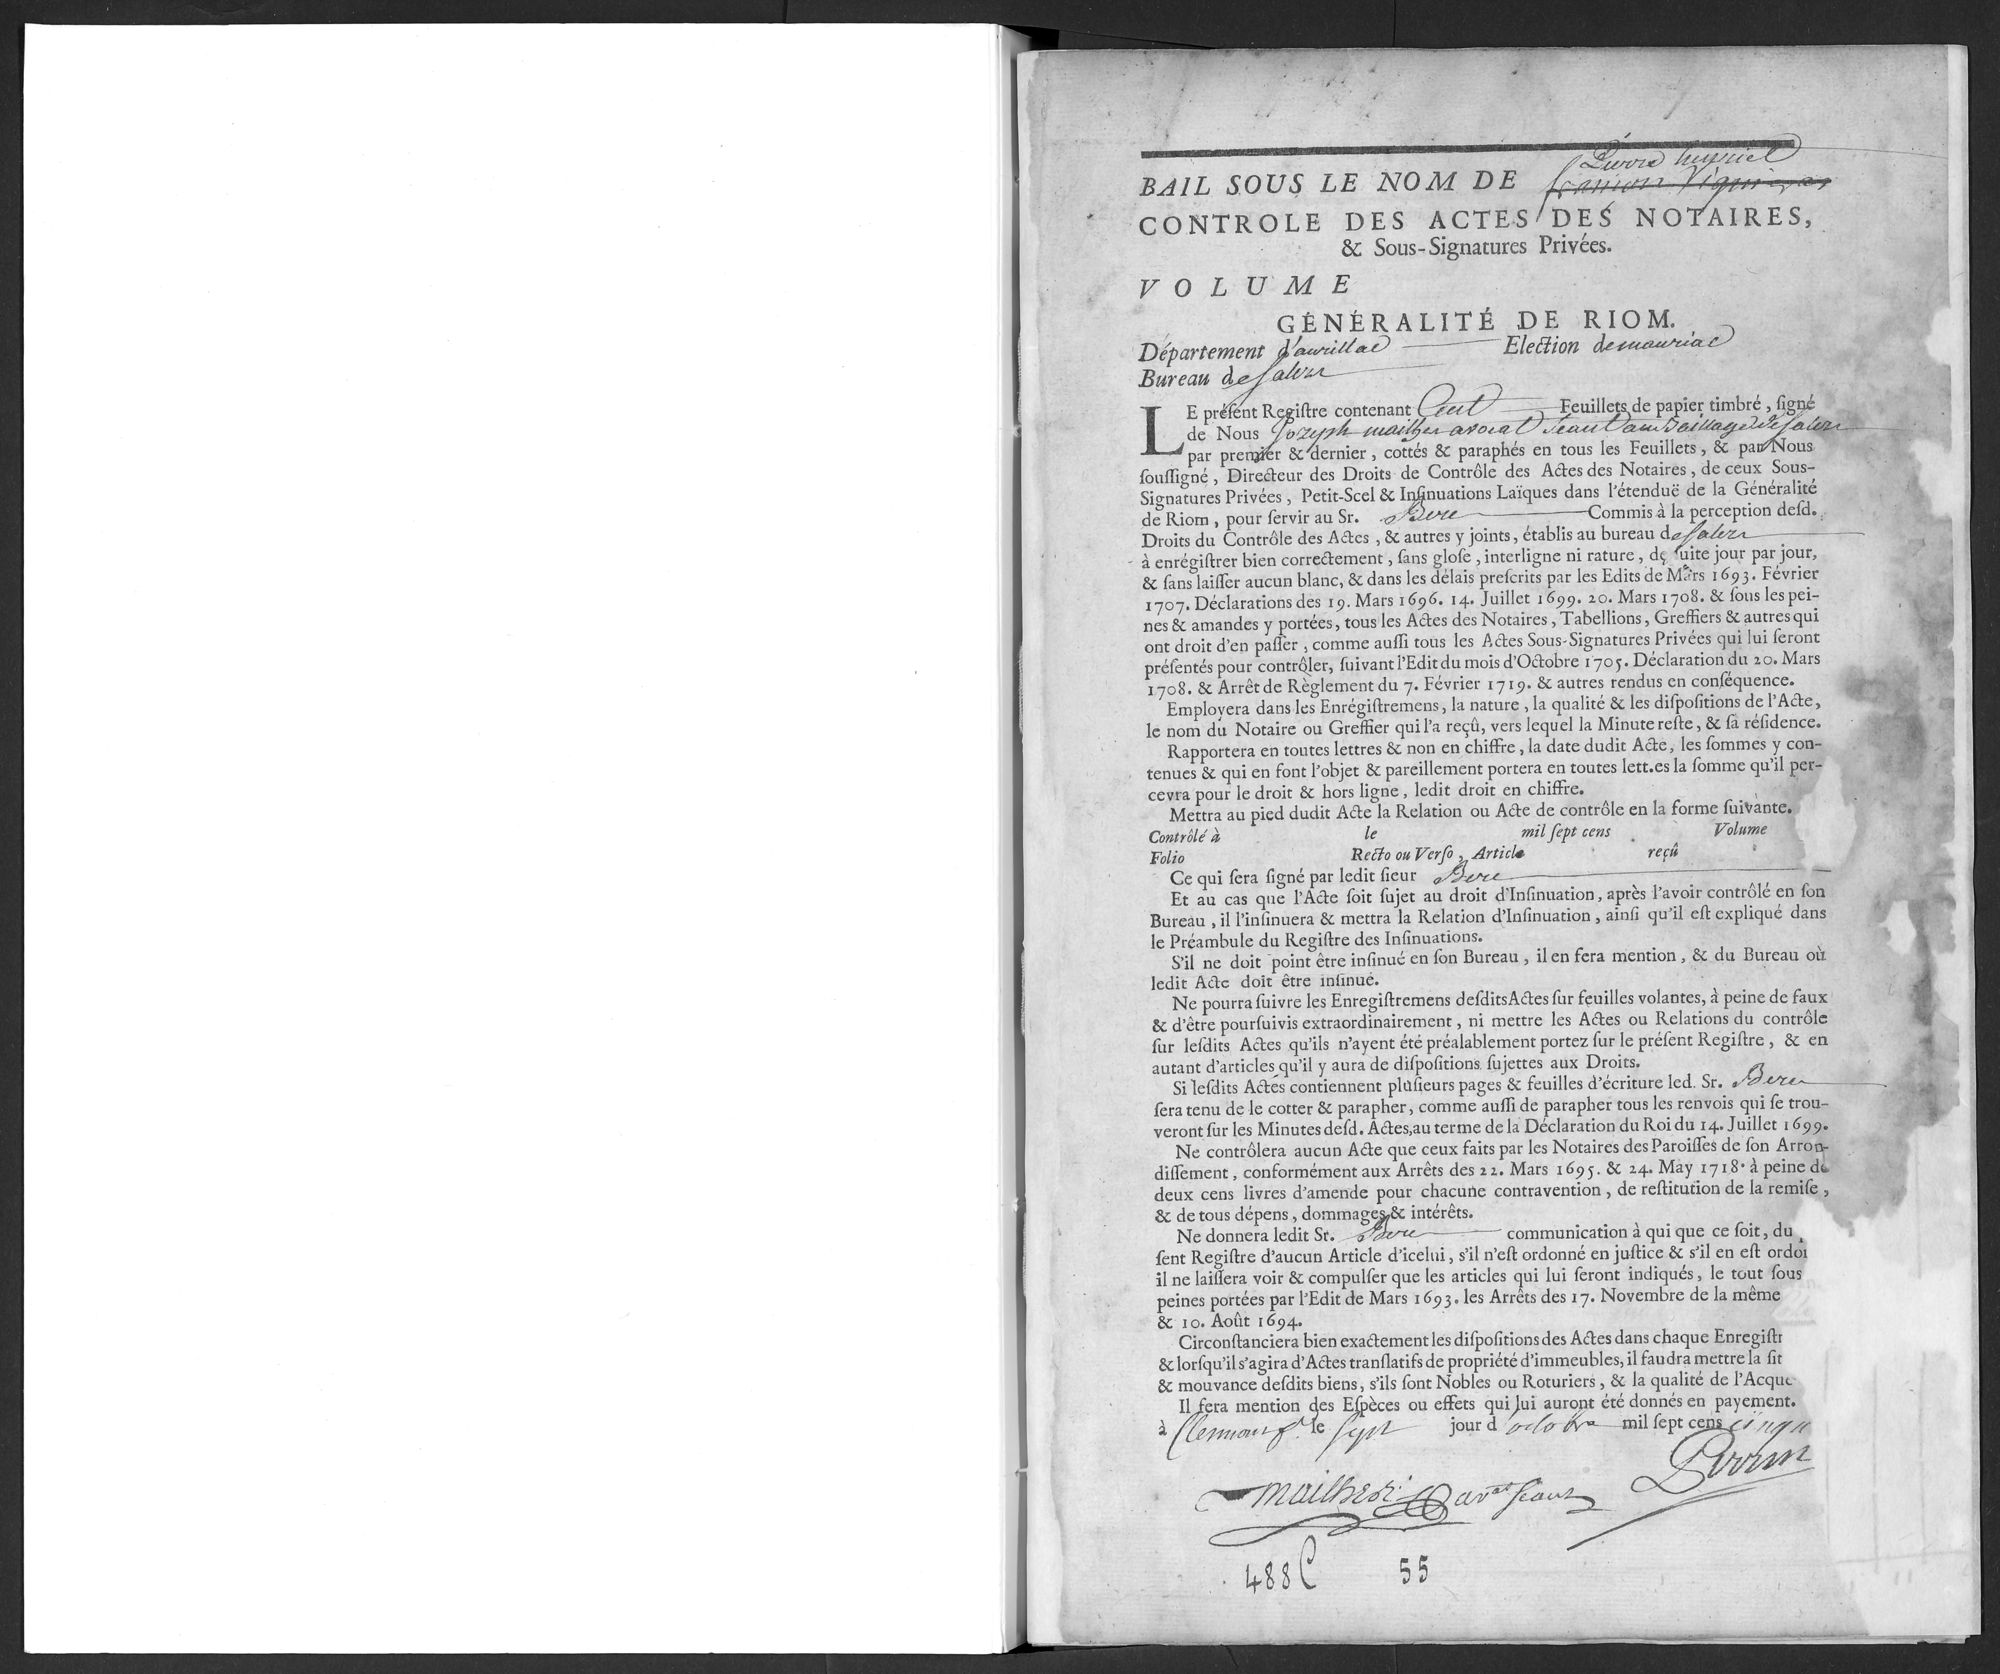 Pierre henriet
BAIL SOUS LE NOM DE
CONTROLE DES ACTES DES NOTAIRES,
& Sous-Signatures Privées.
VOLUME
GÉNÉRALITÉ DE RIOM.
Département d'aurillac Election de mauriac
Bureau de salers
LE préſent Regiſtre contenant Cent Feuillets de papier timbré, ſigné
de Nous Jozeph mailhes avocat seant au Baillage de salers
par premier & dernier, cottés & paraphés en tous les Feuillets, & par Nous
ſouſſigné, Directeur des Droits de Contrôle des Actes des Notaires, de ceux Sous-
Signatures Privées, Petit-Scel & Inſinuations Laïques dans l'étenduë de la Généralité
de Riom, pour ſervir au Sr. Commis à la perception deſd.
Droits du Contrôle des Actes, & autres y joints, établis au bureau de salers
à enrégiſtrer bien correctement, ſans gloſe, interligne ni rature, de ſuite jour par jour,
& ſans laiſſer aucun blanc, & dans les délais preſcrits par les Edits de Mars 1693. Février
1707. Déclarations des 19. Mars 1696. 14. Juillet 1699. 20. Mars 1708. & ſous les pei-
nes & amandes y portées, tous les Actes des Notaires, Tabellions, Greffiers & autres qui
ont droit d'en paſſer, comme auſſi tous les Actes Sous-Signatures Privées qui lui ſeront
préſentés pour contrôler, ſuivant l'Edit du mois d'Octobre 1705. Déclaration du 20. Mars
1708. & Arrêt de Règlement du 7. Février 1719. & autres rendus en conſéquence.
Employera dans les Enrégiſtremens, la nature, la qualité & les diſpoſitions de l'Acte,
le nom du Notaire ou Greffier qui l'a reçû, vers lequel la Minute reſte, & ſa réſidence.
Rapportera en toutes lettres & non en chiffre, la date dudit Acte, les ſommes y con-
tenues & qui en font l'objet & pareillement portera en toutes lett.es la ſomme qu'il per-
cevra pour le droit & hors ligne, ledit droit en chiffre.
Mettra au pied dudit Acte la Relation ou Acte de contrôle en la forme ſuivante.
Contrôlé à le mil ſept cens Volume
Folio Recto ou Verſo, Article reçû
Ce qui ſera ſigné par ledit ſieur
Et au cas que l'Acte ſoit ſujet au droit d'Inſinuation, après l'avoir contrôlé en ſon
Bureau, il l'inſinuera & mettra la Relation d'Inſinuation, ainſi qu'il eſt expliqué dans
le Préambule du Regiſtre des Inſinuations.
S'il ne doit point être inſinué en ſon Bureau, il en fera mention, & du Bureau où
ledit Acte doit être inſinué.
Ne pourra ſuivre les Enregiſtremens deſdits Actes ſur feuilles volantes, à peine de faux
& d'être pourſuivis extraordinairement, ni mettre les Actes ou Relations du contrôle
ſur leſdits Actes qu'ils n'ayent été préalablement portez ſur le préſent Regiſtre, & en
autant d'articles qu'il y aura de diſpoſitions ſujettes aux Droits.
Si leſdits Actes contiennent pluſieurs pages & feuilles d'écriture led. Sr.
ſera tenu de le cotter & parapher, comme auſſi de parapher tous les renvois qui ſe trou-
veront ſur les Minutes deſd. Actes, au terme de la Déclaration du Roi du 14. Juillet 1699.
Ne contrôlera aucun Acte que ceux faits par les Notaires des Paroiſſes de ſon Arron-
diſſement, conformément aux Arrêts des 22. Mars 1695. & 24. May 1718. à peine de
deux cens livres d'amende pour chacune contravention, de reſtitution de la remiſe,
& de tous dépens, dommages & intérêts.
Ne donnera ledit Sr. communication à qui que ce ſoit, du
ſent Regiſtre d'aucun Article d'icelui, s'il n'eſt ordonné en juſtice & s'il en eſt ordon
il ne laiſſera voir & compulſer que les articles qui lui ſeront indiqués, le tout ſous
peines portées par l'Edit de Mars 1693. les Arrêts des 17. Novembre de la même
& 10. Août 1694.
Circonſtanciera bien exactement les diſpoſitions des Actes dans chaque Enregiſtr
& lorſqu'il s'agira d'Actes tranſlatifs de propriété d'immeubles, il faudra mettre la ſit
& mouvance deſdits biens, s'ils ſont Nobles ou Roturiers, & la qualité de l'Acque
Il fera mention des Eſpèces ou effets qui lui auront été donnés en payement.
à Clermont fd. le sept jour d'octobre mil ſept cens cinqu
Perrin
mailhes avat seant
488 C 55